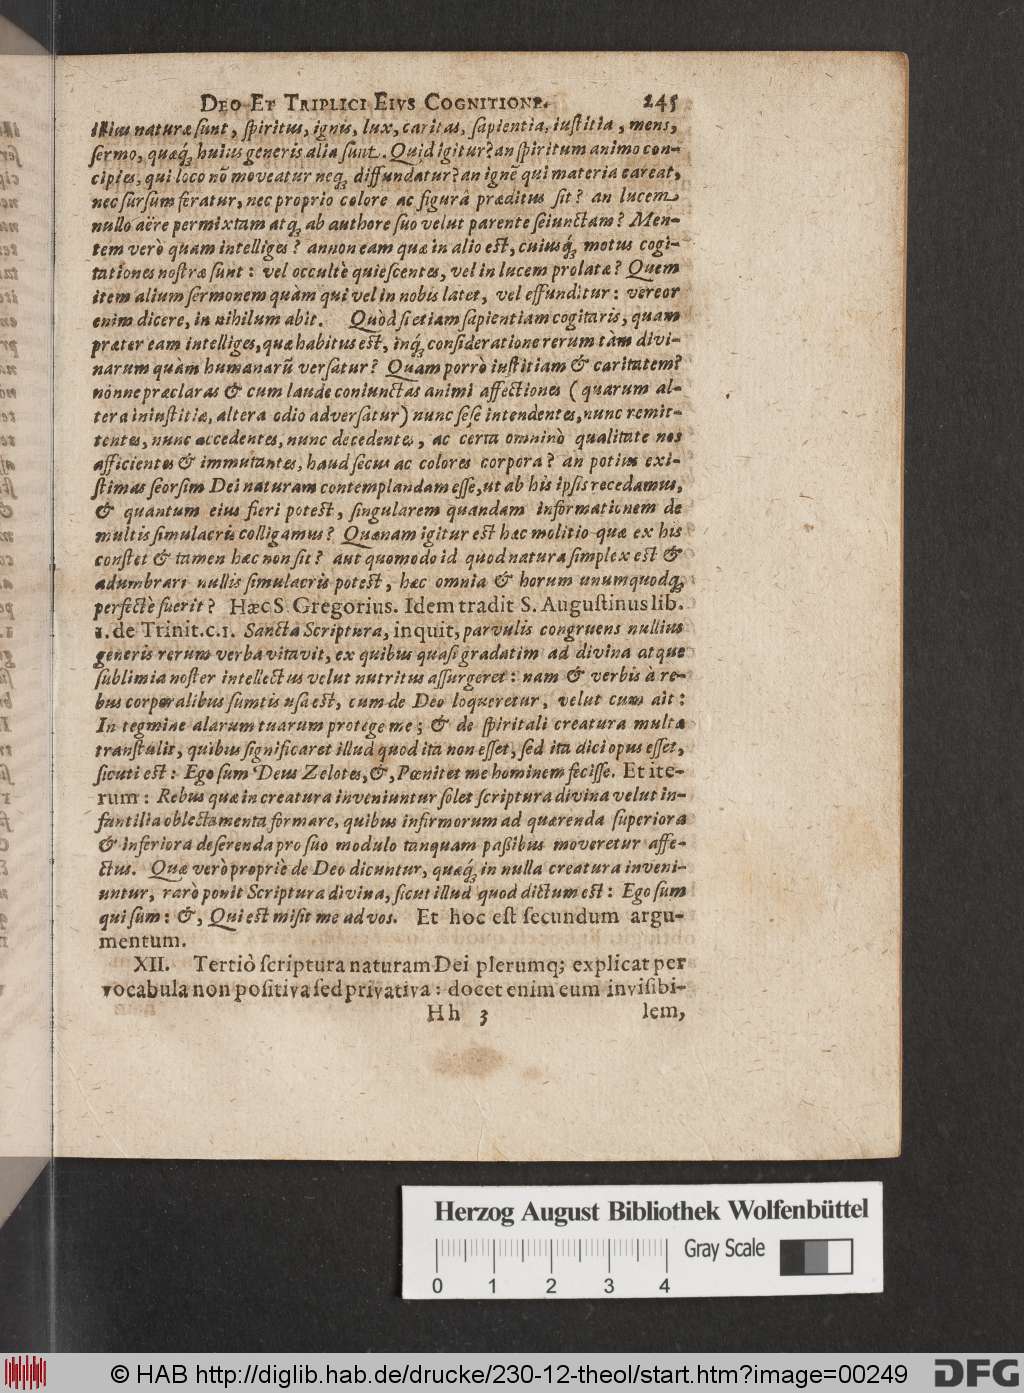 DEO ET TRIPLICI EIVS COGNITIONE. 245
illius naturæ sunt, spiritus, ignis, lux, caritas, sapientia, iustitia, mens,
sermo, quæq́; huius generis alia sunt. Quid igitur? an spiritum animo con-
cipies, qui loco nõ moveatur neq; diffundatur? an ignẽ qui materia careat,
nec sursum feratur, nec proprio colore ac figurâ præditus sit? an lucem
nullo aëre permixtam atq; ab authore suo velut parente seiunctam? Men-
tem verò quam intelliges? annon eam quæ in alio est, cuiusq́; motus cogi-
tationes nostræ sunt: vel occultè quiescentes, vel in lucem prolatæ? Quem
item alium sermonem quàm qui vel in nobis latet, vel effunditur: vereor
enim dicere, in nihilum abit. Quòd si etiam sapientiam cogitaris, quam
præter eam intelliges, quæ habitus est, inq́; consideratione rerum tàm divi-
narum quàm humanarũ versatur? Quam porrò iustitiam & caritatem?
nónne præclaras & cum laude coniunctas animi affectiones (quarum al-
tera iniustitiæ, altera odio adversatur) nunc sese intendentes, nunc remit-
tentes, nunc accedentes, nunc decedentes, ac certa omninò qualitate nos
afficientes & immutantes, haud secus ac colores corpora? an potius exi-
stimas seorsim Dei naturam contemplandam esse, ut ab his ipsis recedamus,
& quantum eius fieri potest, singularem quandam informationem de
multis simulacris colligamus? Quænam igitur est hæc molitio quæ ex his
constet & tamen hæc non sit? aut quomodo id quod natura simplex est &
adumbrari nullis simulacris potest, hæc omnia & horum unumquodq;
perfectè fuerit? Hæc S. Gregorius. Idem tradit S. Augustinus lib.
1. de Trinit. c. 1. Sancta Scriptura, inquit, parvulis congruens nullius
generis rerum verba vitavit, ex quibus quasi gradatim ad divina atque
sublimia noster intellectus velut nutritus assurgeret: nam & verbis à re-
bus corporalibus sumtis usa est, cum de Deo loqueretur, velut cum ait:
In tegmine alarum tuarum protege me; & de spiritali creatura multa
transtulit, quibus significaret illud quod ita non esset, sed ita dici opus esset,
sicuti est: Ego sum Deus Zelotes, &, Pœnitet me hominem fecisse. Et ite-
rum: Rebus quæ in creatura inveniuntur solet scriptura divina velut in-
fantilia oblectamenta formare, quibus infirmorum ad quærenda superiora
& inferiora deserenda pro suo modulo tanquam paßibus moveretur affe-
ctus. Quæ verò propriè de Deo dicuntur, quæq́; in nulla creatura inveni-
untur, rarò ponit Scriptura divina, sicut illud quod dictum est: Ego sum
qui sum: &, Qui est misit me ad vos. Et hoc est secundum argu-
mentum.
XII. Tertiò scriptura naturam Dei plerumq; explicat per
vocabula non positiva sed privativa: docet enim eum invisibi-
Hh 3 lem,
Herzog August Bibliothek Wolfenbüttel
Gray Scale
0 1 2 3 4
© HAB http://diglib.hab.de/drucke/230-12-theol/start.htm?image=00249
DFG